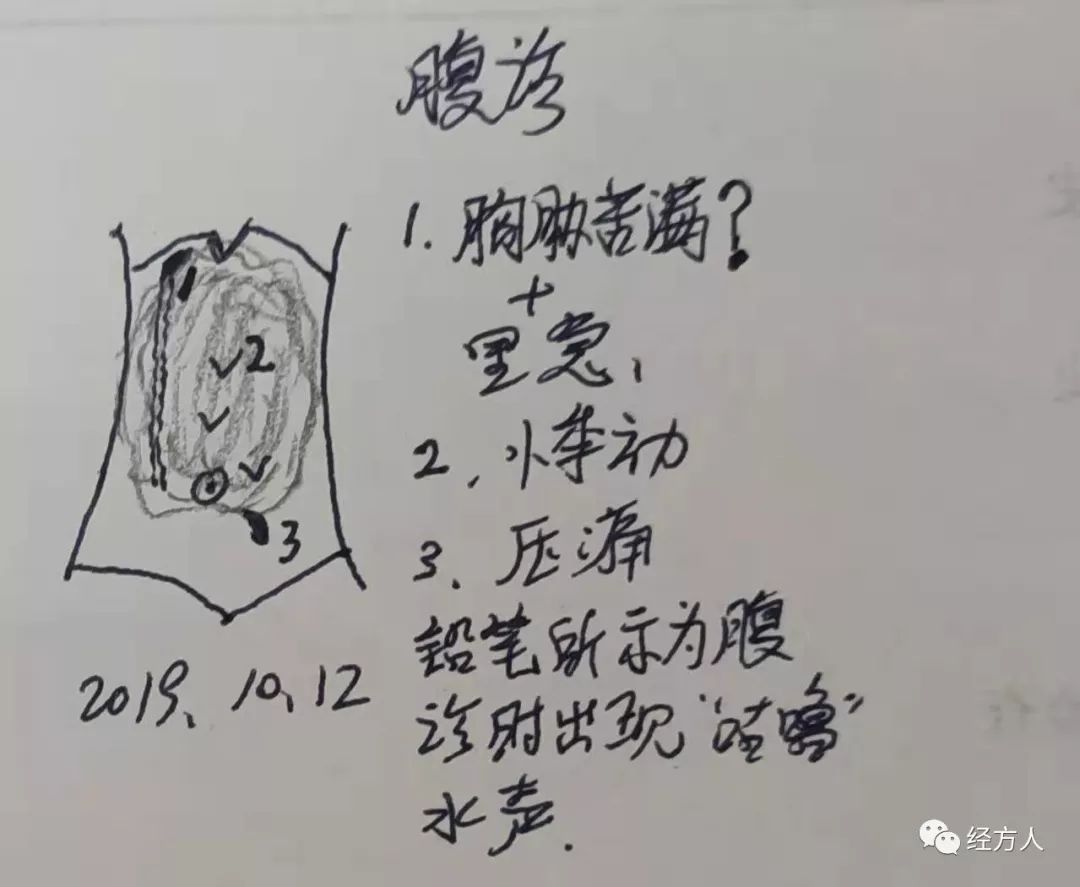 腹诊
1.胸胁苦满?
+
里急,
2、悸动
3、压痛
铅笔所示为腹
诊时出现"咕噜"
水声.
1
2
3
2019、10、12
经方人